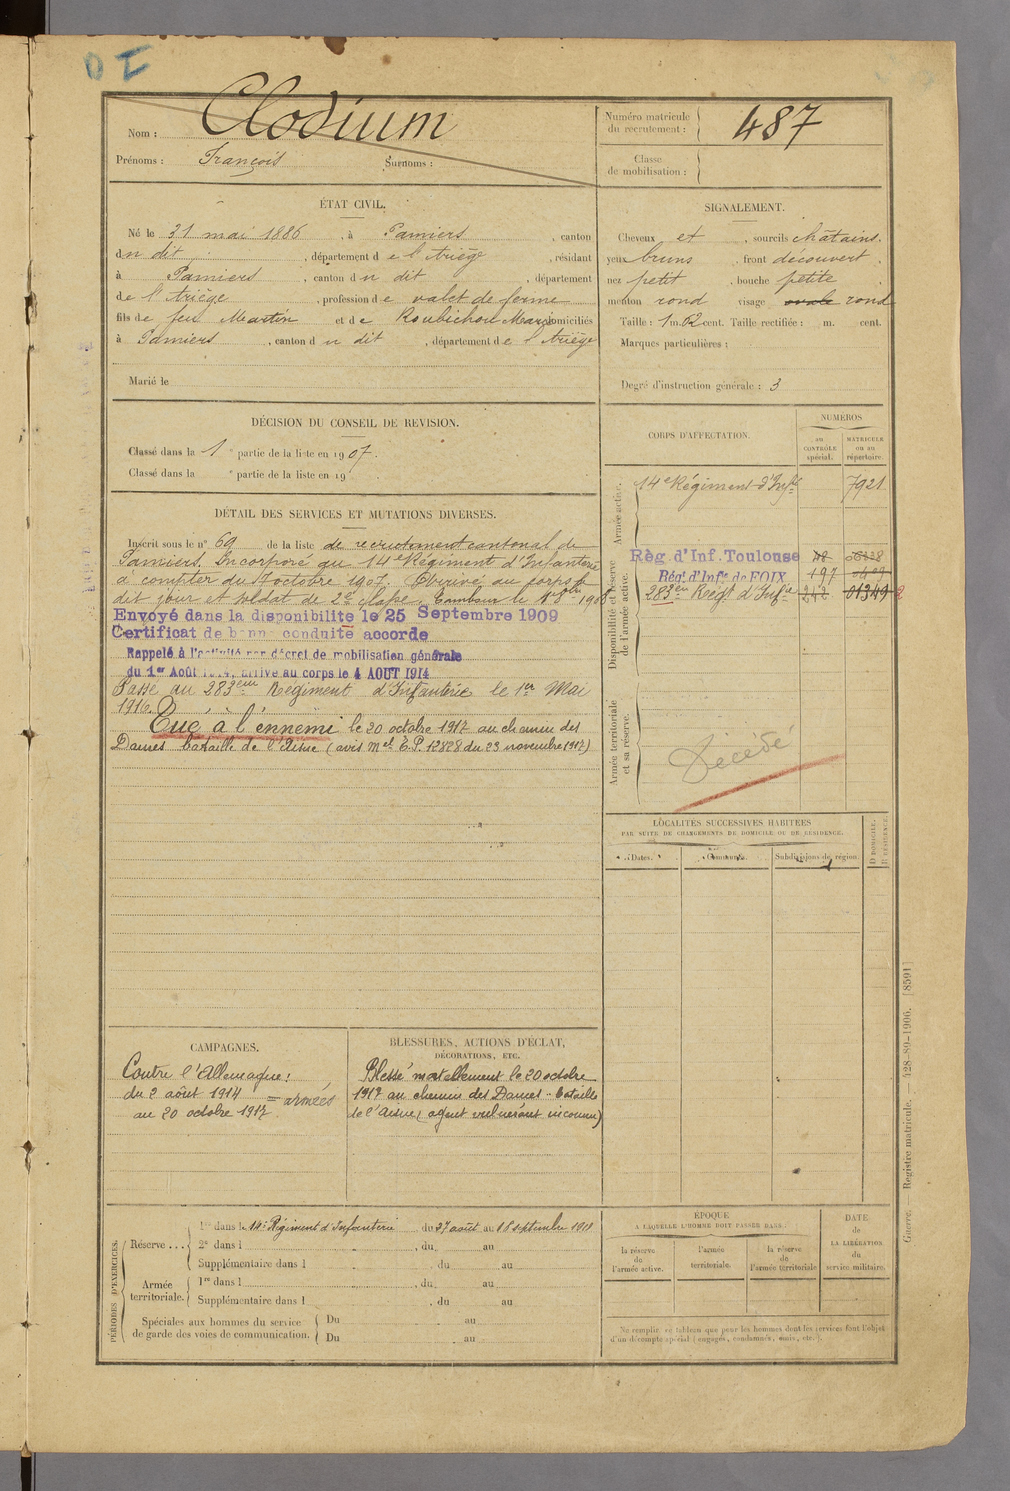 OI
Nom : Clodium
Prénoms : François Surnoms :
Numéro matricule du recrutement : 487
Classe de mobilisation :
ÉTAT CIVIL.
Né le 31 mai 1886, à Pamiers, canton
du dit, département de l'Ariège, résidant
à Pamiers, canton du dit, département
de l'Ariège, profession de valet de ferme
fils de feu Martin et de Roubichou Marie domiciliés
à Pamiers, canton du dit, département de l'Ariège
Marié le
SIGNALEMENT.
Cheveux et, sourcils châtains.
yeux bruns, front découvert,
nez petit, bouche petite
menton rond visage ovale rond
Taille : 1 m. 62 cent. Taille rectifiée : m. cent.
Marques particulières :
Degré d'instruction générale : 3
DÉCISION DU CONSEIL DE REVISION.
Classé dans la 1e partie de la liste en 1907.
Classé dans la e partie de la liste en 19
CORPS D'AFFECTATION.
NUMÉROS
au CONTRÔLE spécial.
MATRICULE ou au répertoire.
Armée active.
14e Régiment d'Infie 7921
Disponibilité et réserve de l'armée active.
Règ. d'Inf. Toulouse
Régt d'Infie de FOIX 197
283em Régt d'Infie 242 01349
Armée territoriale et sa réserve.
Décédé
DÉTAIL DES SERVICES ET MUTATIONS DIVERSES.
Inscrit sous le n° 69 de la liste de recrutement cantonal de
Pamiers. Incorporé au 14e Régiment d'Infanterie
à compter du 7 octobre 1907. Arrivé au corps le
dit jour et soldat de 2e classe. Tambour le 1908
Envoyé dans la disponibilité le 25 Septembre 1909
Certificat de bonne conduite accordé
Rappelé à l'activité par décret de mobilisation générale
du 1er Août 1914, arrivé au corps le 4 AOUT 1914
Passé au 283ème Régiment d'Infanterie le 1er Mai
1916.
Tué à l'ennemi le 20 octobre 1917 au chemin des
Dames bataille de l'Aisne (avis mel E.P. 12828 du 23 novembre 1917)
LOCALITÉS SUCCESSIVES HABITÉES
PAR SUITE DE CHANGEMENTS DE DOMICILE OU DE RÉSIDENCE.
Dates. Communes. Subdivisions de région. D DOMICILE. R RÉSIDENCE.
CAMPAGNES.
Contre l'Allemagne :
du 2 août 1914
au 20 octobre 1917 = armées
BLESSURES, ACTIONS D'ÉCLAT,
DÉCORATIONS, ETC.
Blessé mortellement le 20 octobre
1917 au chemin des Dames - bataille
de l'Aisne (agent vulnérant inconnu)
PÉRIODES D'EXERCICES.
Réserve ...
1re dans le 14e Régiment d'Infanterie du 27 août au 18 septembre 1911
2e dans l , du au
Supplémentaire dans l , du au
Armée territoriale.
1re dans l , du au
Supplémentaire dans l , du au
Spéciales aux hommes du service de garde des voies de communication.
Du au
Du au
ÉPOQUE
À LAQUELLE L'HOMME DOIT PASSER DANS :
la réserve de l'armée active.
l'armée territoriale.
la réserve de l'armée territoriale
DATE de LA LIBÉRATION du service militaire.
Ne remplir ce tableau que pour les hommes dont les services font l'objet
d'un décompte spécial (engagés, condamnés, omis, etc.).
Guerre. — Registre matricule. — 128-89-1906. [8591]